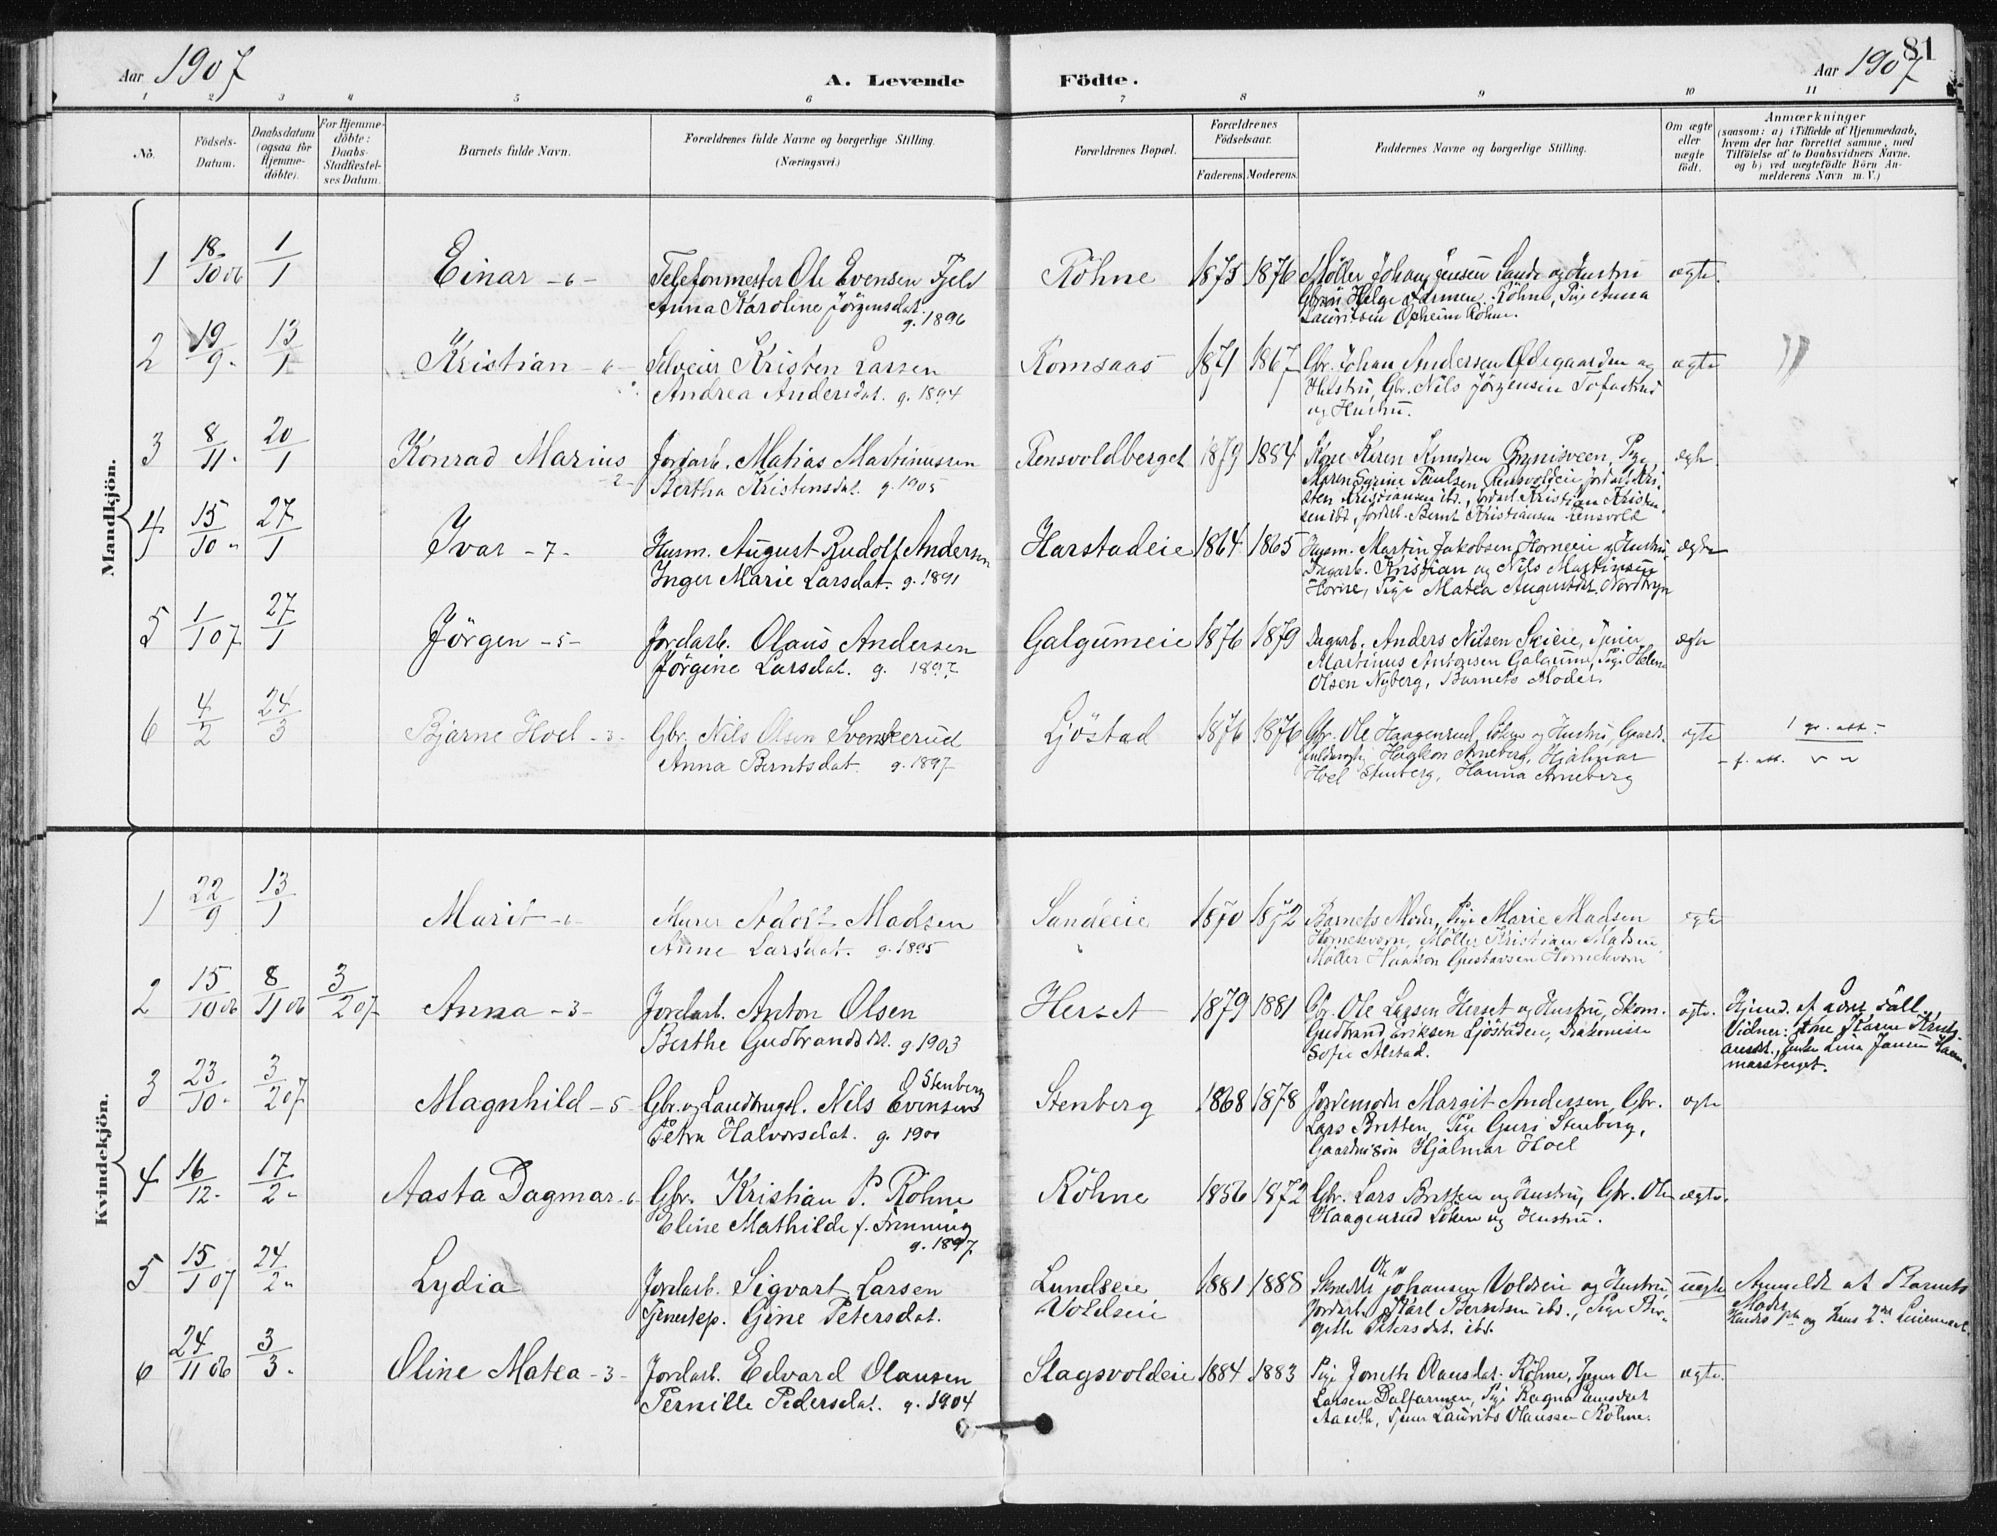 Aar 1907
A. Levende Födte.
81
Aar 1907
1 2 3 4 5 6 7 8 9 10 11
No.
Födsels-Datum.
Daabsdatum (ogsaa for Hjemme-döbte).
For Hjemme-döbte: Daabs-Stadfæstel-ses Datum.
Barnets fulde Navn.
Forældrenes fulde Navne og borgerlige Stilling.
(Næringsvei.)
Forældrenes Bopæl.
Forældrenes Födselsaar.
Faderens. Moderens.
Faddernes Navne og borgerlige Stilling.
Om ægte eller uægte födt.
Anmærkninger
(saasom: a) i Tilfælde af Hjemmedaab, hvem der har forrettet samme, med Tilföielse af to Daabsvidners Navne, og b) ved uægtefödte Börn An-melderens Navn m. V.)
Mandkjön.
1 18/10 06 1/1 Einar -6- Telefonmester Ole Evensen Fjeld Röhne 1875 1876 Møller Johan Jensen Sande og Hustru ægte.
Anna Karoline Jörgensdat. g. 1896 Gbr. Helge Larmen Röhne, Pige Anna
Lauritsen Opheim Röhne.
2 19/9 13/1 Kristian -6- Selveier Kristen Larsen Romsaas 1871 1867 Gbr. Johan Andersen Ødegaarden og ægte
Andrea Andersdat. g. 1894 Hustru, Gbr. Nils Jörgensen Tofastrud
og Hustru.
3 8/11 20/1 Konrad Marius -2- Jordarb. Matias Martinussen Rensvoldberget 1879 1884 Kone Karen Knudsen Brynisveen, Pige ægte
Bertha Kristensdat. g. 1905 Maren Syrine Paulsen Rensvoldeie, Jordarb. Kri-
sten Kristiansen ibd., Jordarb. Kristian Kristen-
sen ibd., Jordarb. Bernt Kristiansen Rensvold
4 15/10 27/1 Ivar -7- Husm. August Rudolf Andersen Harstadeie 1864 1865 Husm. Martin Jakobsen Horneeie og Hustru ægte
Inger Marie Larsdat. g. 1891 Dagarb. Kristian og Nils Martinsen
Horne, Pige Matea Augustdat. Nordbryn
5 1/1 07 27/1 Jörgen -5- Jordarb. Olaus Andersen Galgumeie 1876 1879 Dagarb. Anders Nilsen Skieie, Tjener ægte
Jörgine Larsdat. g. 1897 Martinus Antonsen Galgum, Pige Helene
Olsen Nyberg, Barnets Moder.
6 4/2 24/3 Bjarne Hoel -3- Gbr. Nils Olsen Svenskerud Ljöstad 1876 1876 Gbr. Ole Haagenrud, Löken og Hustru, Gaards- ægte 1 gr. att.
Anna Berntsdat. g. 1897 Haakon Arneberg, Hjalmar - f. att.
Hoel Stenberg, Hanna Arneberg
Kvindekjön.
1 22/9 13/1 Marit -6- Murer Adolf Madsen Sandeie 1870 1872 Barnets Moder, Pige Marie Madsen ægte
Anne Larsdat. g. 1895 Hornekvern, Möller Kristian Madsen
Möller Haakon Gustavsen Hornekvern
2 15/10 06 8/11 06 3/2 07 Anna -3- Jordarb. Anton Olsen Herset 1879 1881 Gbr. Ole Larsen Herset og Hustru, Skom. ægte. Hjemd. af
Berthe Gudbrandsdat. g. 1903 Gudbrand Eriksen Ljöstadeie, Diakonisse Vidner: Kone Karen Kristi-
Sofie Alstad. ansdt., Enke Lina Jansen Ham-
marsberget.
3 23/10 3/2 07 Magnhild -5- Gbr. og Landbrugsl. Nils Evensen O Stenberg Stenberg 1868 1878 Jordemoder Margit Andersen, Gbr. ægte
Petra Halvorsdat. g. 1900 Lars Britten, Pige Guri Stenberg,
Gaardmsön Hjalmar Hoel
4 16/12 17/2 Aasta Dagmar -6- Gbr. Kristian P. Röhne Röhne 1856 1872 Gbr. Lars Britten og Hustru, Gbr. Ole ægte.
Eline Mathilde f. Finning g. 1897 Haagenrud Löken og Hustru.
5 15/1 07 24/2 Lydia Jordarb. Sigvart Larsen Lundseie 1881 1888 Skredder Ole Johansen Voldseie og Hustru, uægte Anmeldt af Barnets
Tjenestep. Gine Petersdat. Voldseie Jordarb. Karl Berntsen ibd., Pige Bir- Moder
gitte Petersdat. ibd. og hans 2det Leiermaal.
6 24/11 06 3/3 Oline Matea -3- Jordarb. Edvard Olausen Slagsvoldeie 1884 1883 Pige Joneth Olausdat. Röhne, Tjener Ole ægte.
Pernille Pedersdat. g. 1904 Larsen Dalfarmen, Pige Ragna
Aaseth, Tjener Laurits Olaussen Röhne.